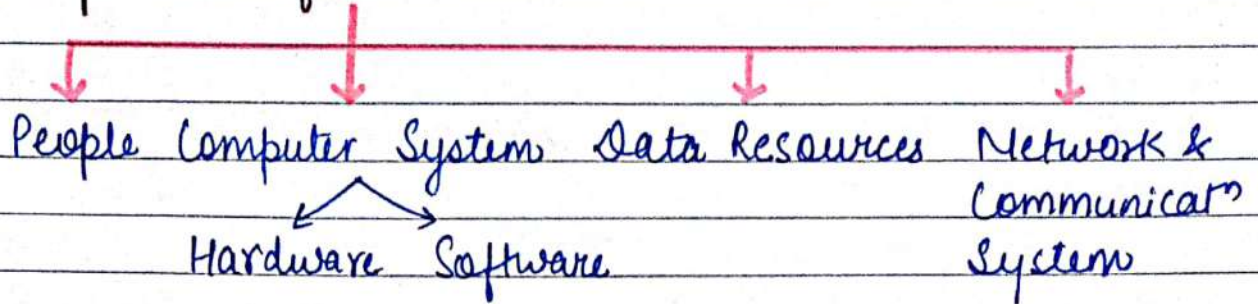 People Computer System Data Resources Network &
Communicatⁿ
Hardware Software System